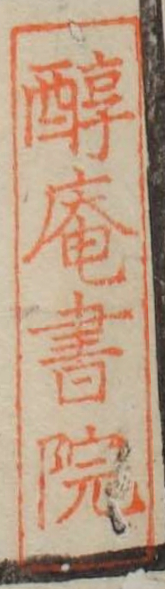 醇庵書院